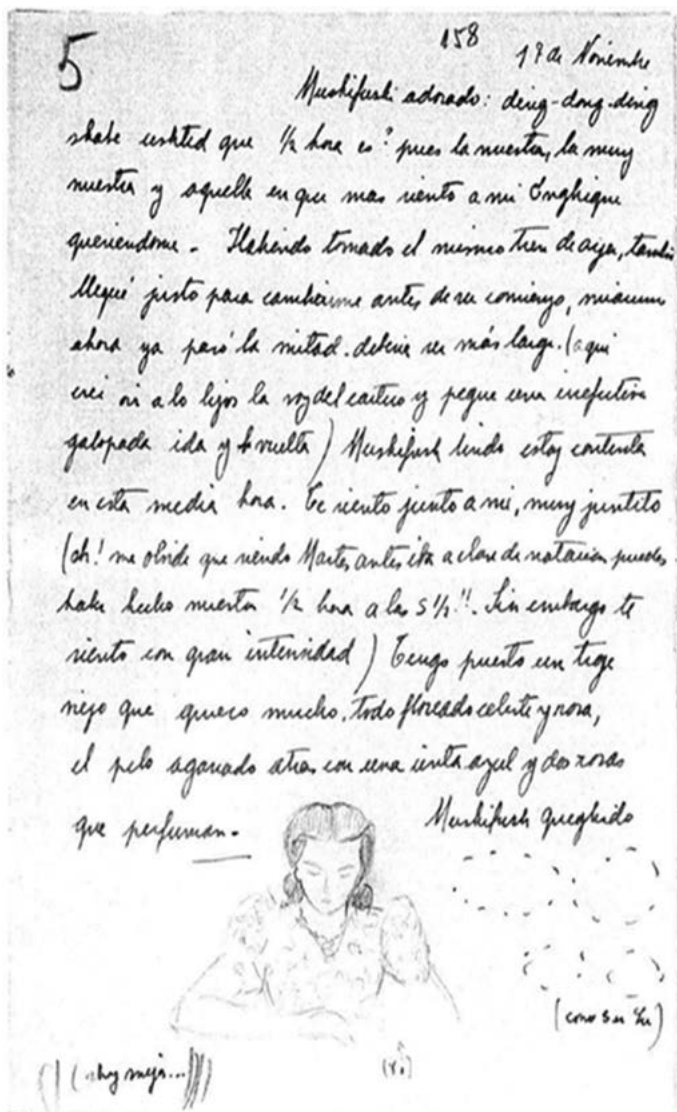 5
158
1º de Noviembre
Mushifush adorado: ding-dong-ding
shabe ushted que ½ hora es? pues la nuestra, la muy
nuestra y aquella en que mas siento a mi Enghique
queriendome. Habiendo tomado el mismo tren de ayer, también
llegué justo para cambiarme antes de su comienzo,
ahora ya pasó la mitad. debiera ser más larga. (aqui
crei oir a lo lejos la voz del cartero y pegue una infructuosa
galopada ida y vuelta) Mushifush lindo estoy contenta
en esta media hora. Te siento junto a mi, muy juntito
(oh! me olvide que siendo Martes antes ida a clase de natacion puedes
haber hecho nuestra ½ hora a las 5½!!. Sin embargo te
siento con gran intensidad) Tengo puesto un traje
viejo que quiero mucho, todo floreado celeste y rosa,
el pelo agarrado atras con una cinta azul y dos rosas
que perfuman.
Mushifush queghido
(como ser tu)
(hoy mejor...)
(Yo)